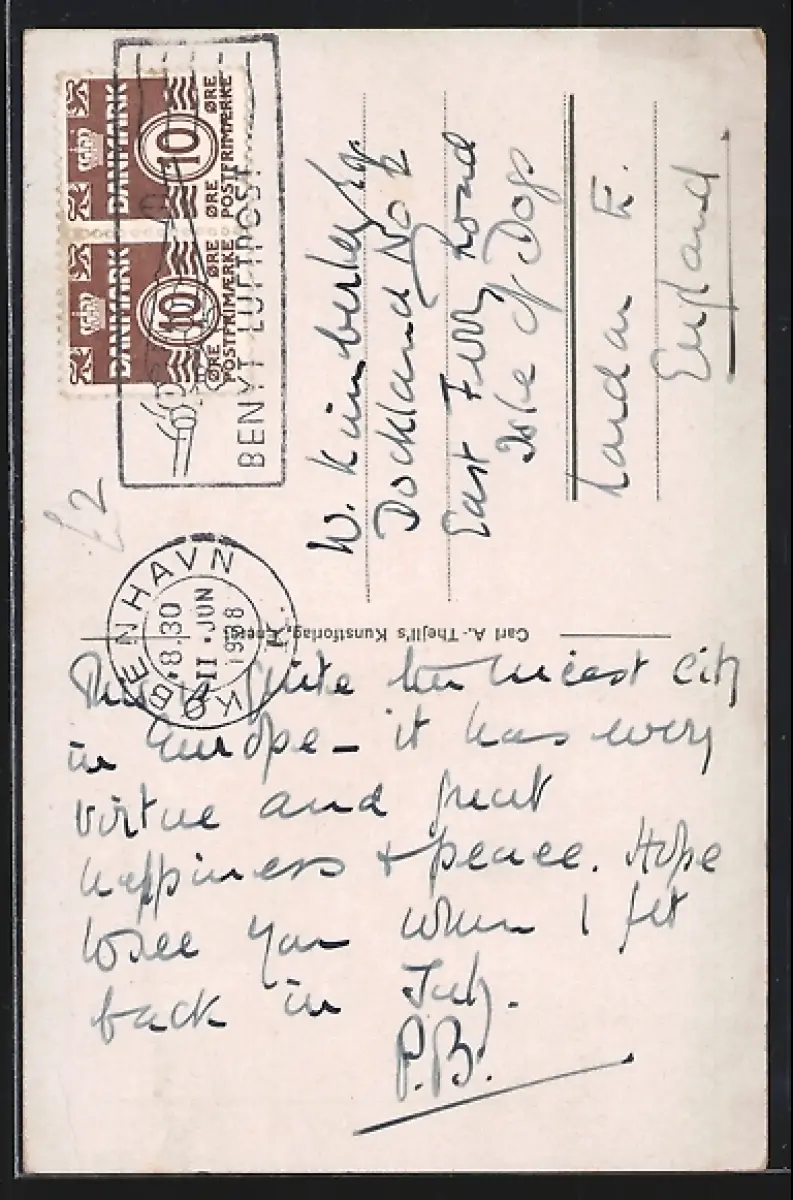 DANMARK
10
ØRE ØRE
POSTFRIMÆRKE
DANMARK
10
ØRE ØRE
POSTFRIMÆRKE
BENYT LUFTPOST
£2
KØBENHAVN K.
8.30
11. JUN
1938
W. Kimberley Esq
Dockland No 2
East Ferry Road
Isle of Dogs
London E.
England
Carl A. Thejll's Kunstforlag, Eneret.
This is quite the nicest city
in Europe – it has every
virtue and great
happiness + peace. Hope
to see you when I get
back in July.
P.B.